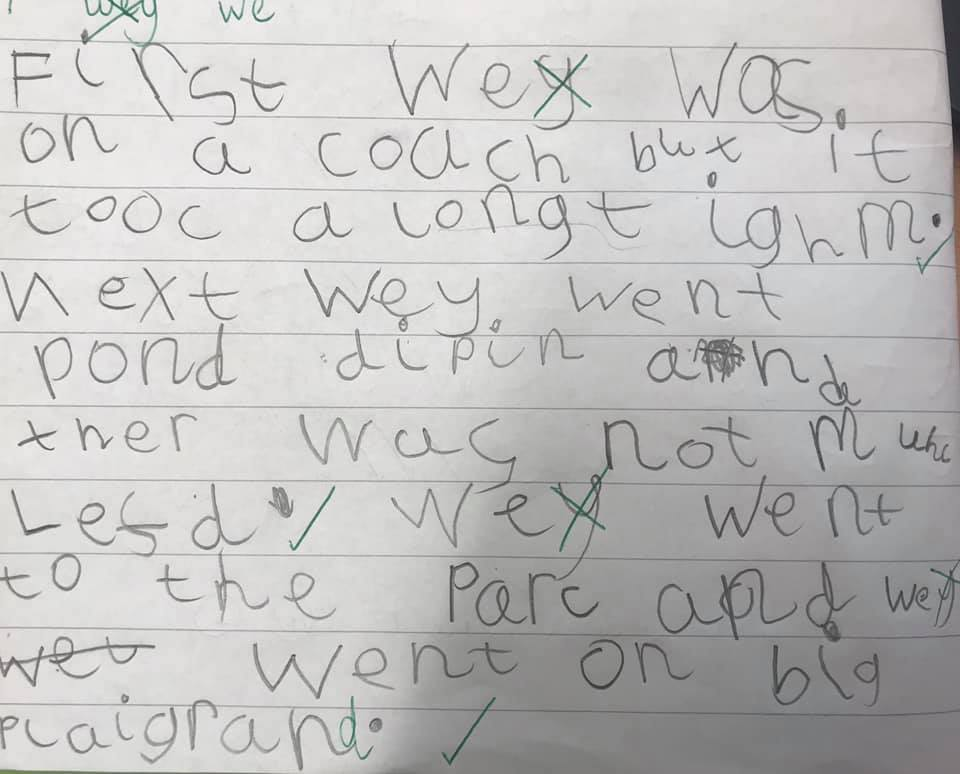 wey we
First Wey Was
on a coach but it
tooc a longt ighm.
Next Wey went
pond dipin and
ther was not Muhc
Lesd Wey went
to the Parc and wey
wet went on big
plaigrand.